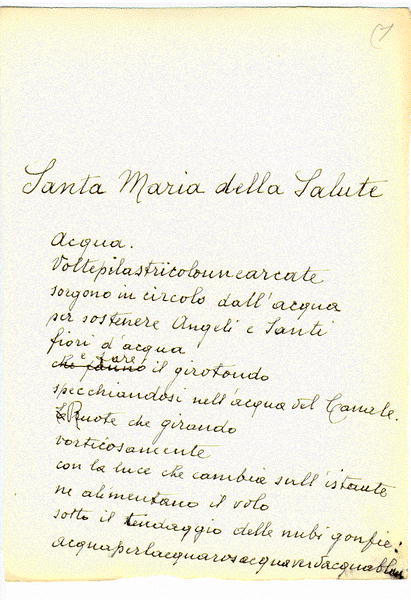 (1
Santa Maria della Salute
Acqua.
Voltepilastricolounearcate
sorgono in circolo dall'acqua
per sostenere Angeli e Santi
fiori d'acqua
e fare
che fanno il girotondo
specchiandosi nell'acqua del Canale.
Ruote che girando
vorticosamente
con la luce che cambia sull'istante
ne alimentano il volo
sotto il tendaggio delle nubi gonfie:
acquaperlacquarosacquaverdacquablu